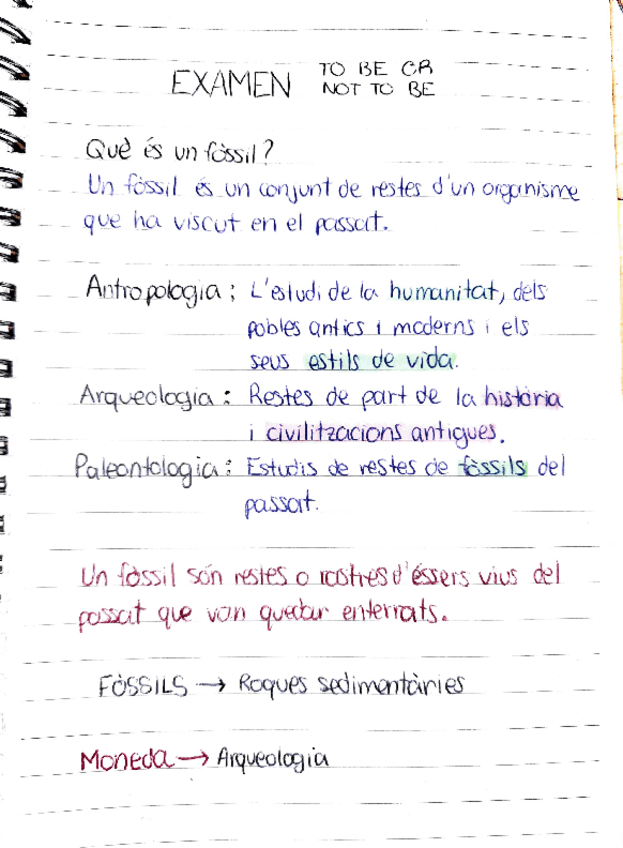 EXAMEN TO BE OR NOT TO BE
Què és un fòssil?
Un fòssil és un conjunt de restes d'un organisme
que ha viscut en el passat.
Antropologia: L'estudi de la humanitat, dels
pobles antics i moderns i els
seus estils de vida.
Arqueologia: Restes de part de la història
i civilitzacions antigues.
Paleontologia: Estudis de restes de fòssils del
passat.
Un fòssil són restes o rastres d'éssers vius del
passat que van quedar enterrats.
FÒSSILS → Roques sedimentàries
Moneda → Arqueologia